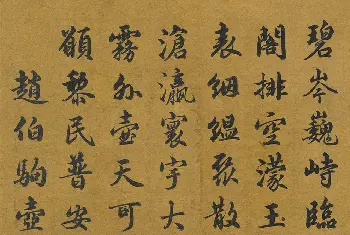 碧岑巍峙臨
閣排空濛玉
表絪縕聚散
滄瀛寰宇大
霧外壺天可
願黎民普安
趙伯駒壺